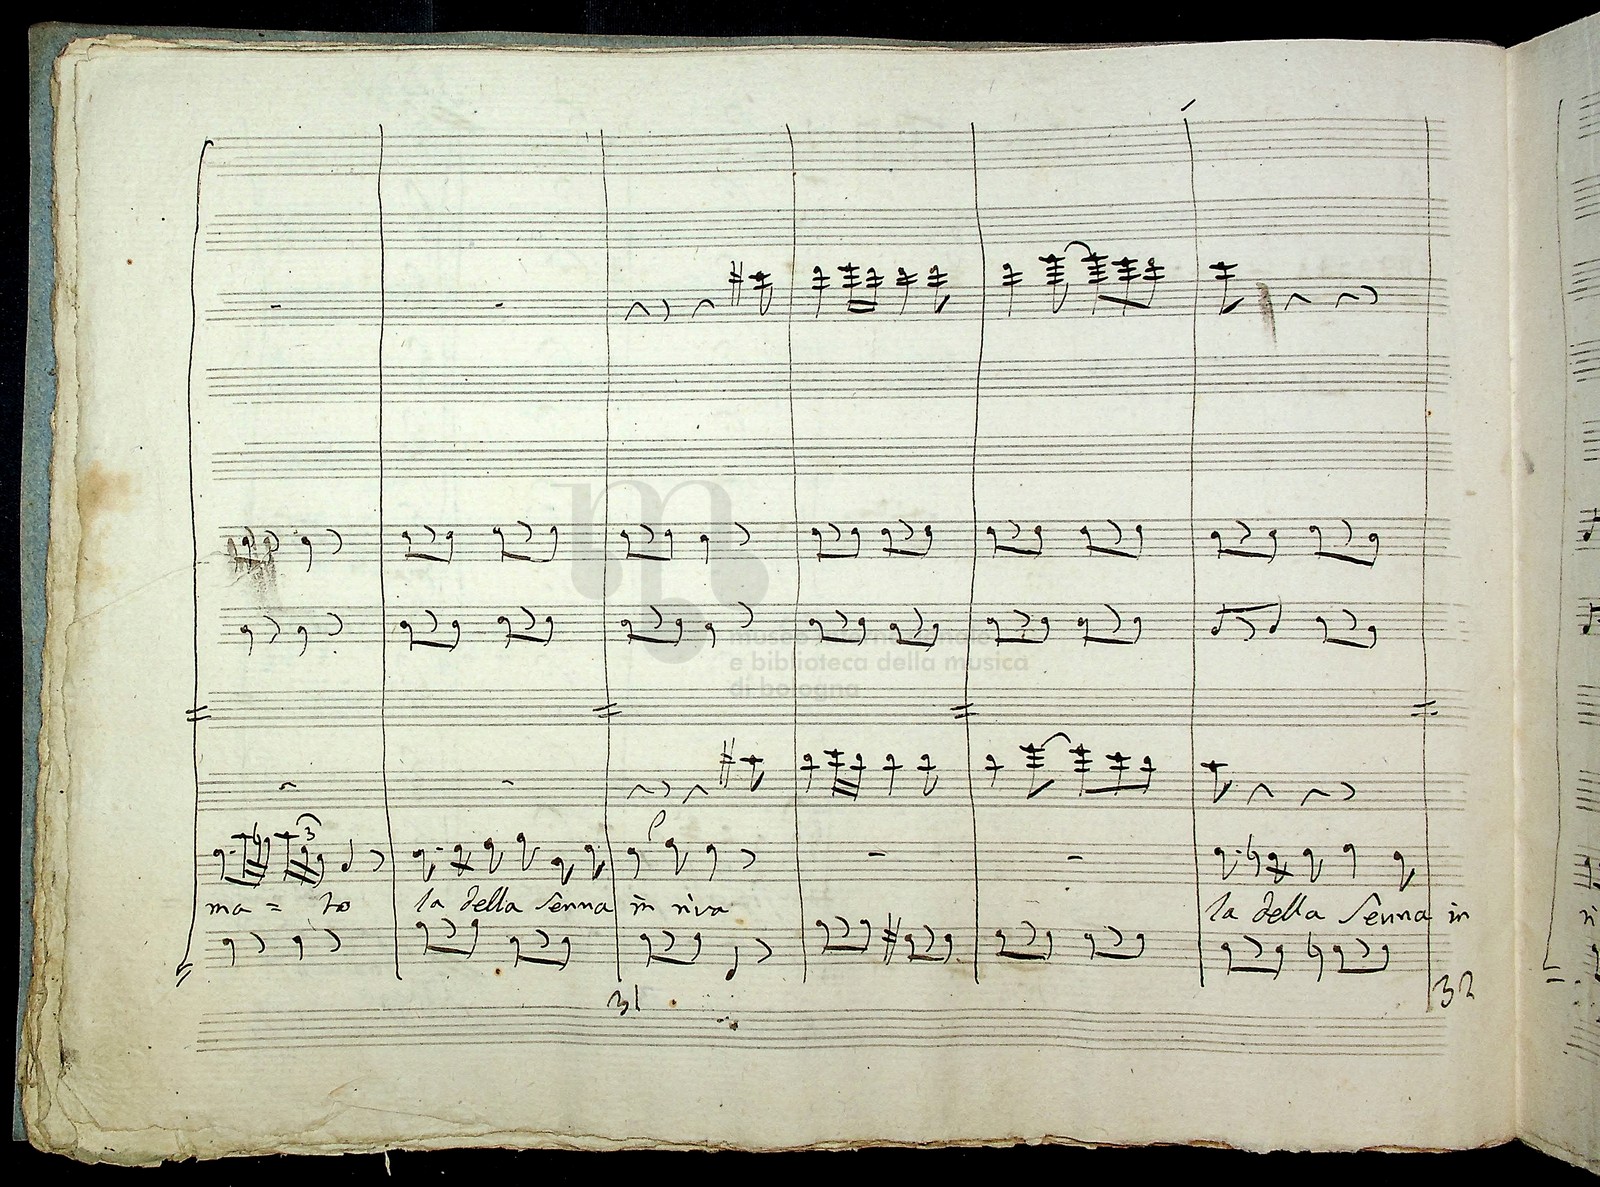 museo internazionale
e biblioteca della musica
di bologna
3
ma = to la della Senna in riva la della Senna in
31 32